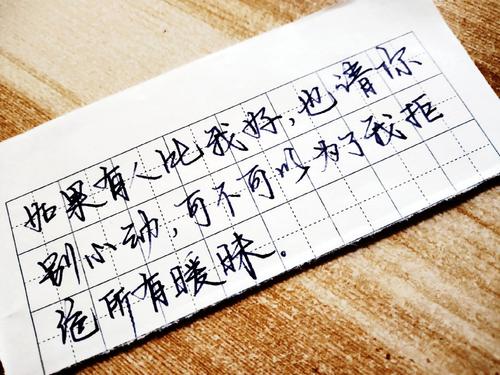 如果有人比我好,也请你
别心动,可不可以为了我拒
绝所有暧昧.